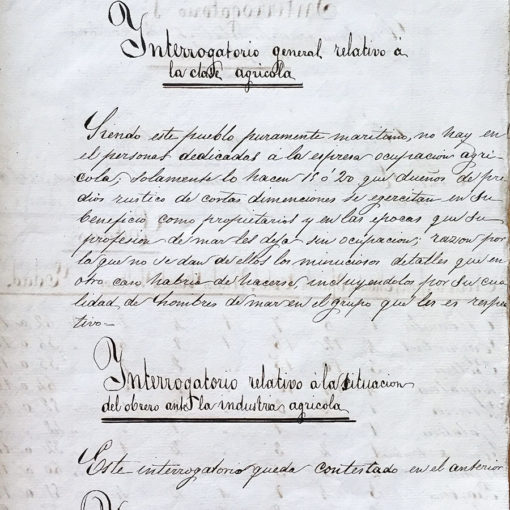 Interrogatorio general relativo á
la clase agricola
Siendo este pueblo puramente maritimo, no hay en
el personas dedicadas á la espresa ocupacion agri-
cola; solamente lo hacen 15 ó 20 que dueños de pre-
dios rustico de cortas dimenciones se ejercitan en su
beneficio como propietarios y en las epocas que su
profesion de mar les deja sin ocupacion; razon por
la que no se dan de ellos los minuciosos detalles que en
otro caso habria de hacerse, incluyendolos por su cua-
lidad de hombres de mar en el grupo que les es respec-
tivo=
Interrogatorio relativo á la situacion
del obrero ante la industria agricola
Este interrogatorio queda contestado en el anterior